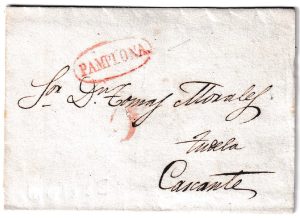 PAMPLONA
Sor Dn Tomas Morales
Tudela
Cascante